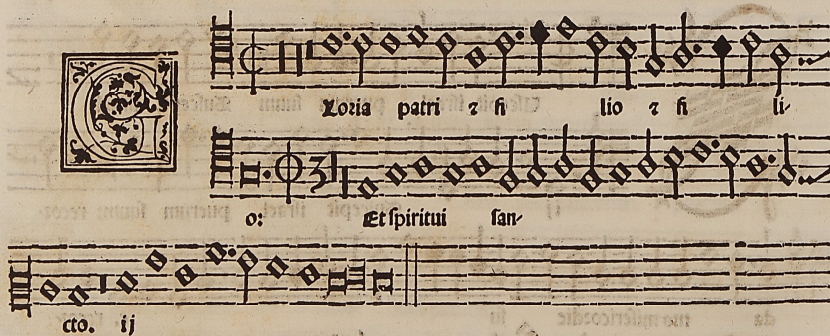 G
Loria patri ⁊ fi lio ⁊ fi li-
o: Et spiritui san-
cto. ij